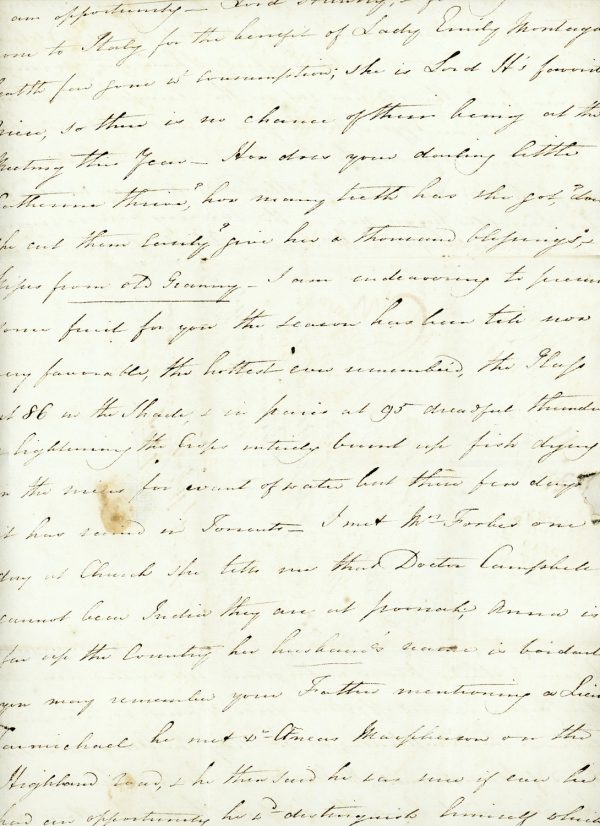 am opportunity - Lord
to Italy for the benefit of Lady Emily Montagu
far gone in consumption; she is Lord H's favorite
so there is no chance of their being at the
this Year - How does your darling little
Catherine thrive", how many teeth has she got, "does
she cut them easily" give her a thousand blessings, &
from old Granny - I am endeavoring to
some fruit for you the season has been till now
very favorable, the hottest ever remember'd, the Glass
at 86 in the Shade, & in paris at 95 dreadful thunder
lightening the Crops entirely burnt up fish dying
in the for want of water but these few days
it has rained in Torrents - I met Mrs Forbes one
day at Church she tells me that Doctor Campbell
cannot bear India they are at poonah; Anna is
far up the Country her husband's name is
you may remember your Father mentioning a Lieu
Carmichael he met wt Aneas Macpherson on the
Highland road, & he then said he was sure if ever he
had an opportunity he wd distinguish himself which